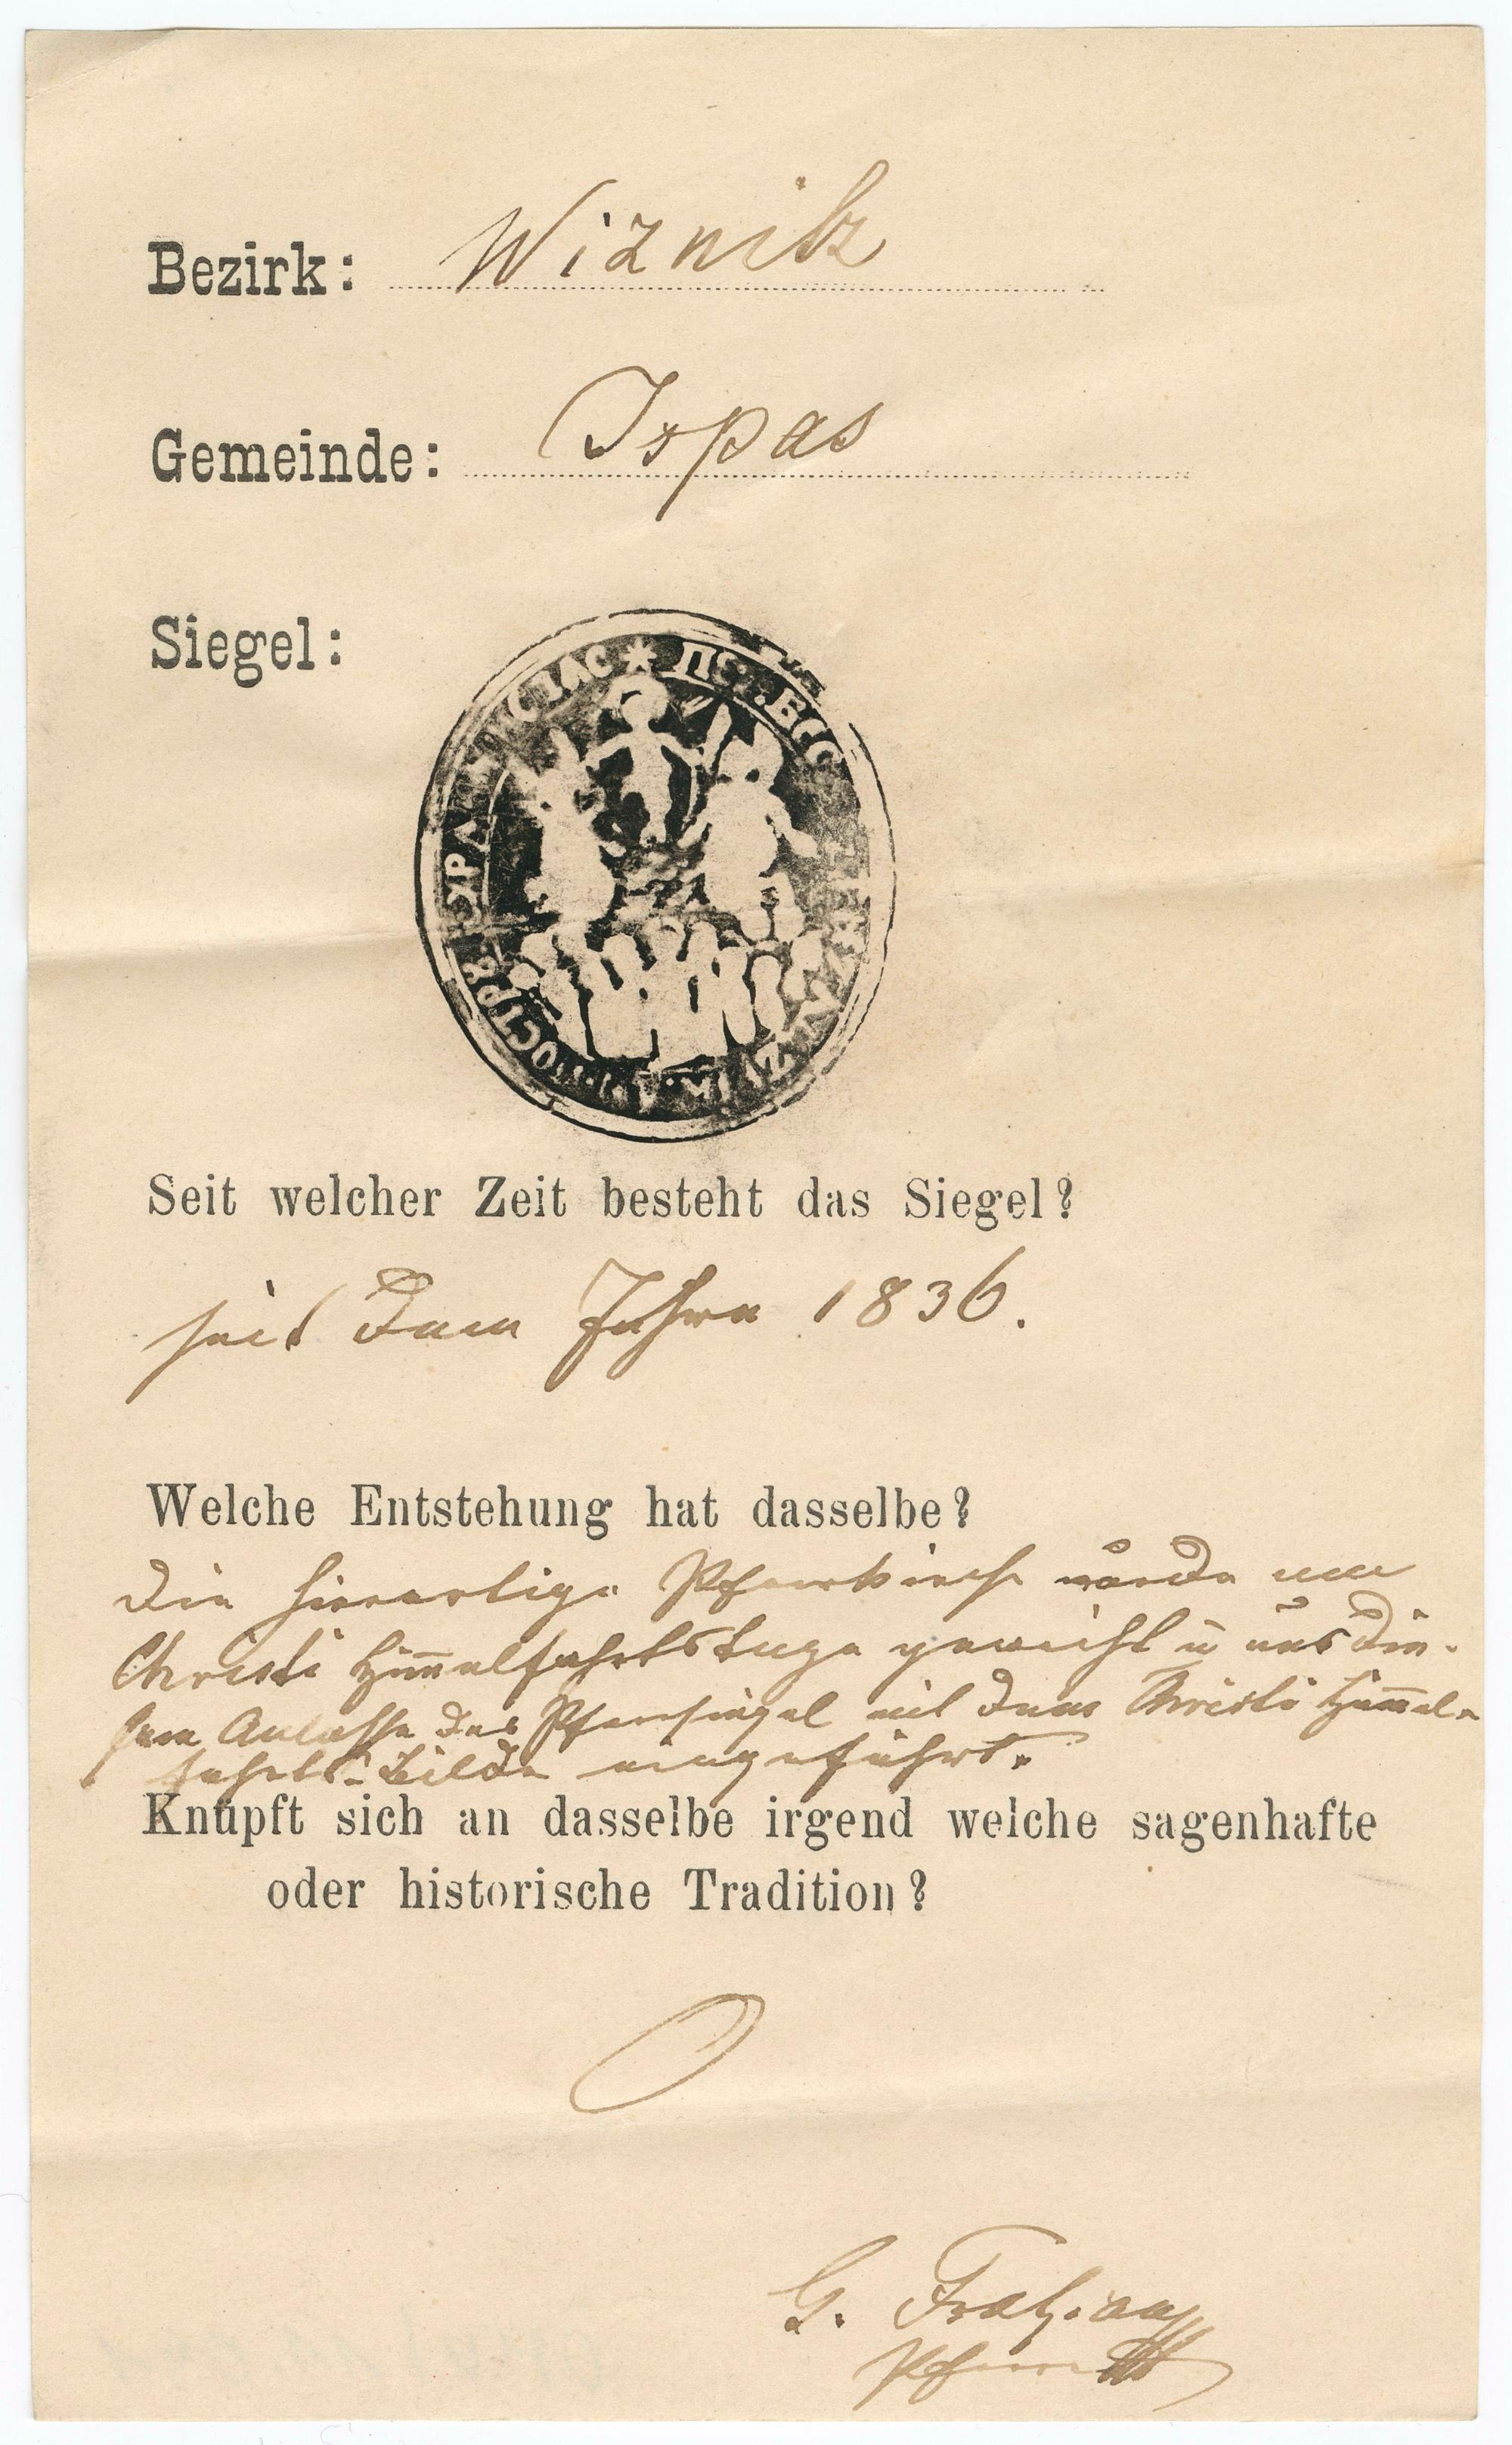 Bezirk: Wiznitz
Gemeinde: Ispas
Siegel:
Seit welcher Zeit besteht das Siegel?
seit dem Jahre 1836.
Welche Entstehung hat dasselbe?
Die hierortige Pfarrkirche wurde am
Christi Him̅elfahrtstage geweiht u aus die-
sem Anlasse das Pfarrsiegel mit dem Christi Him̅el-
fahrts-Bilde eingeführt.
Knüpft sich an dasselbe irgend welche sagenhafte
oder historische Tradition?
G.
Pfarrer